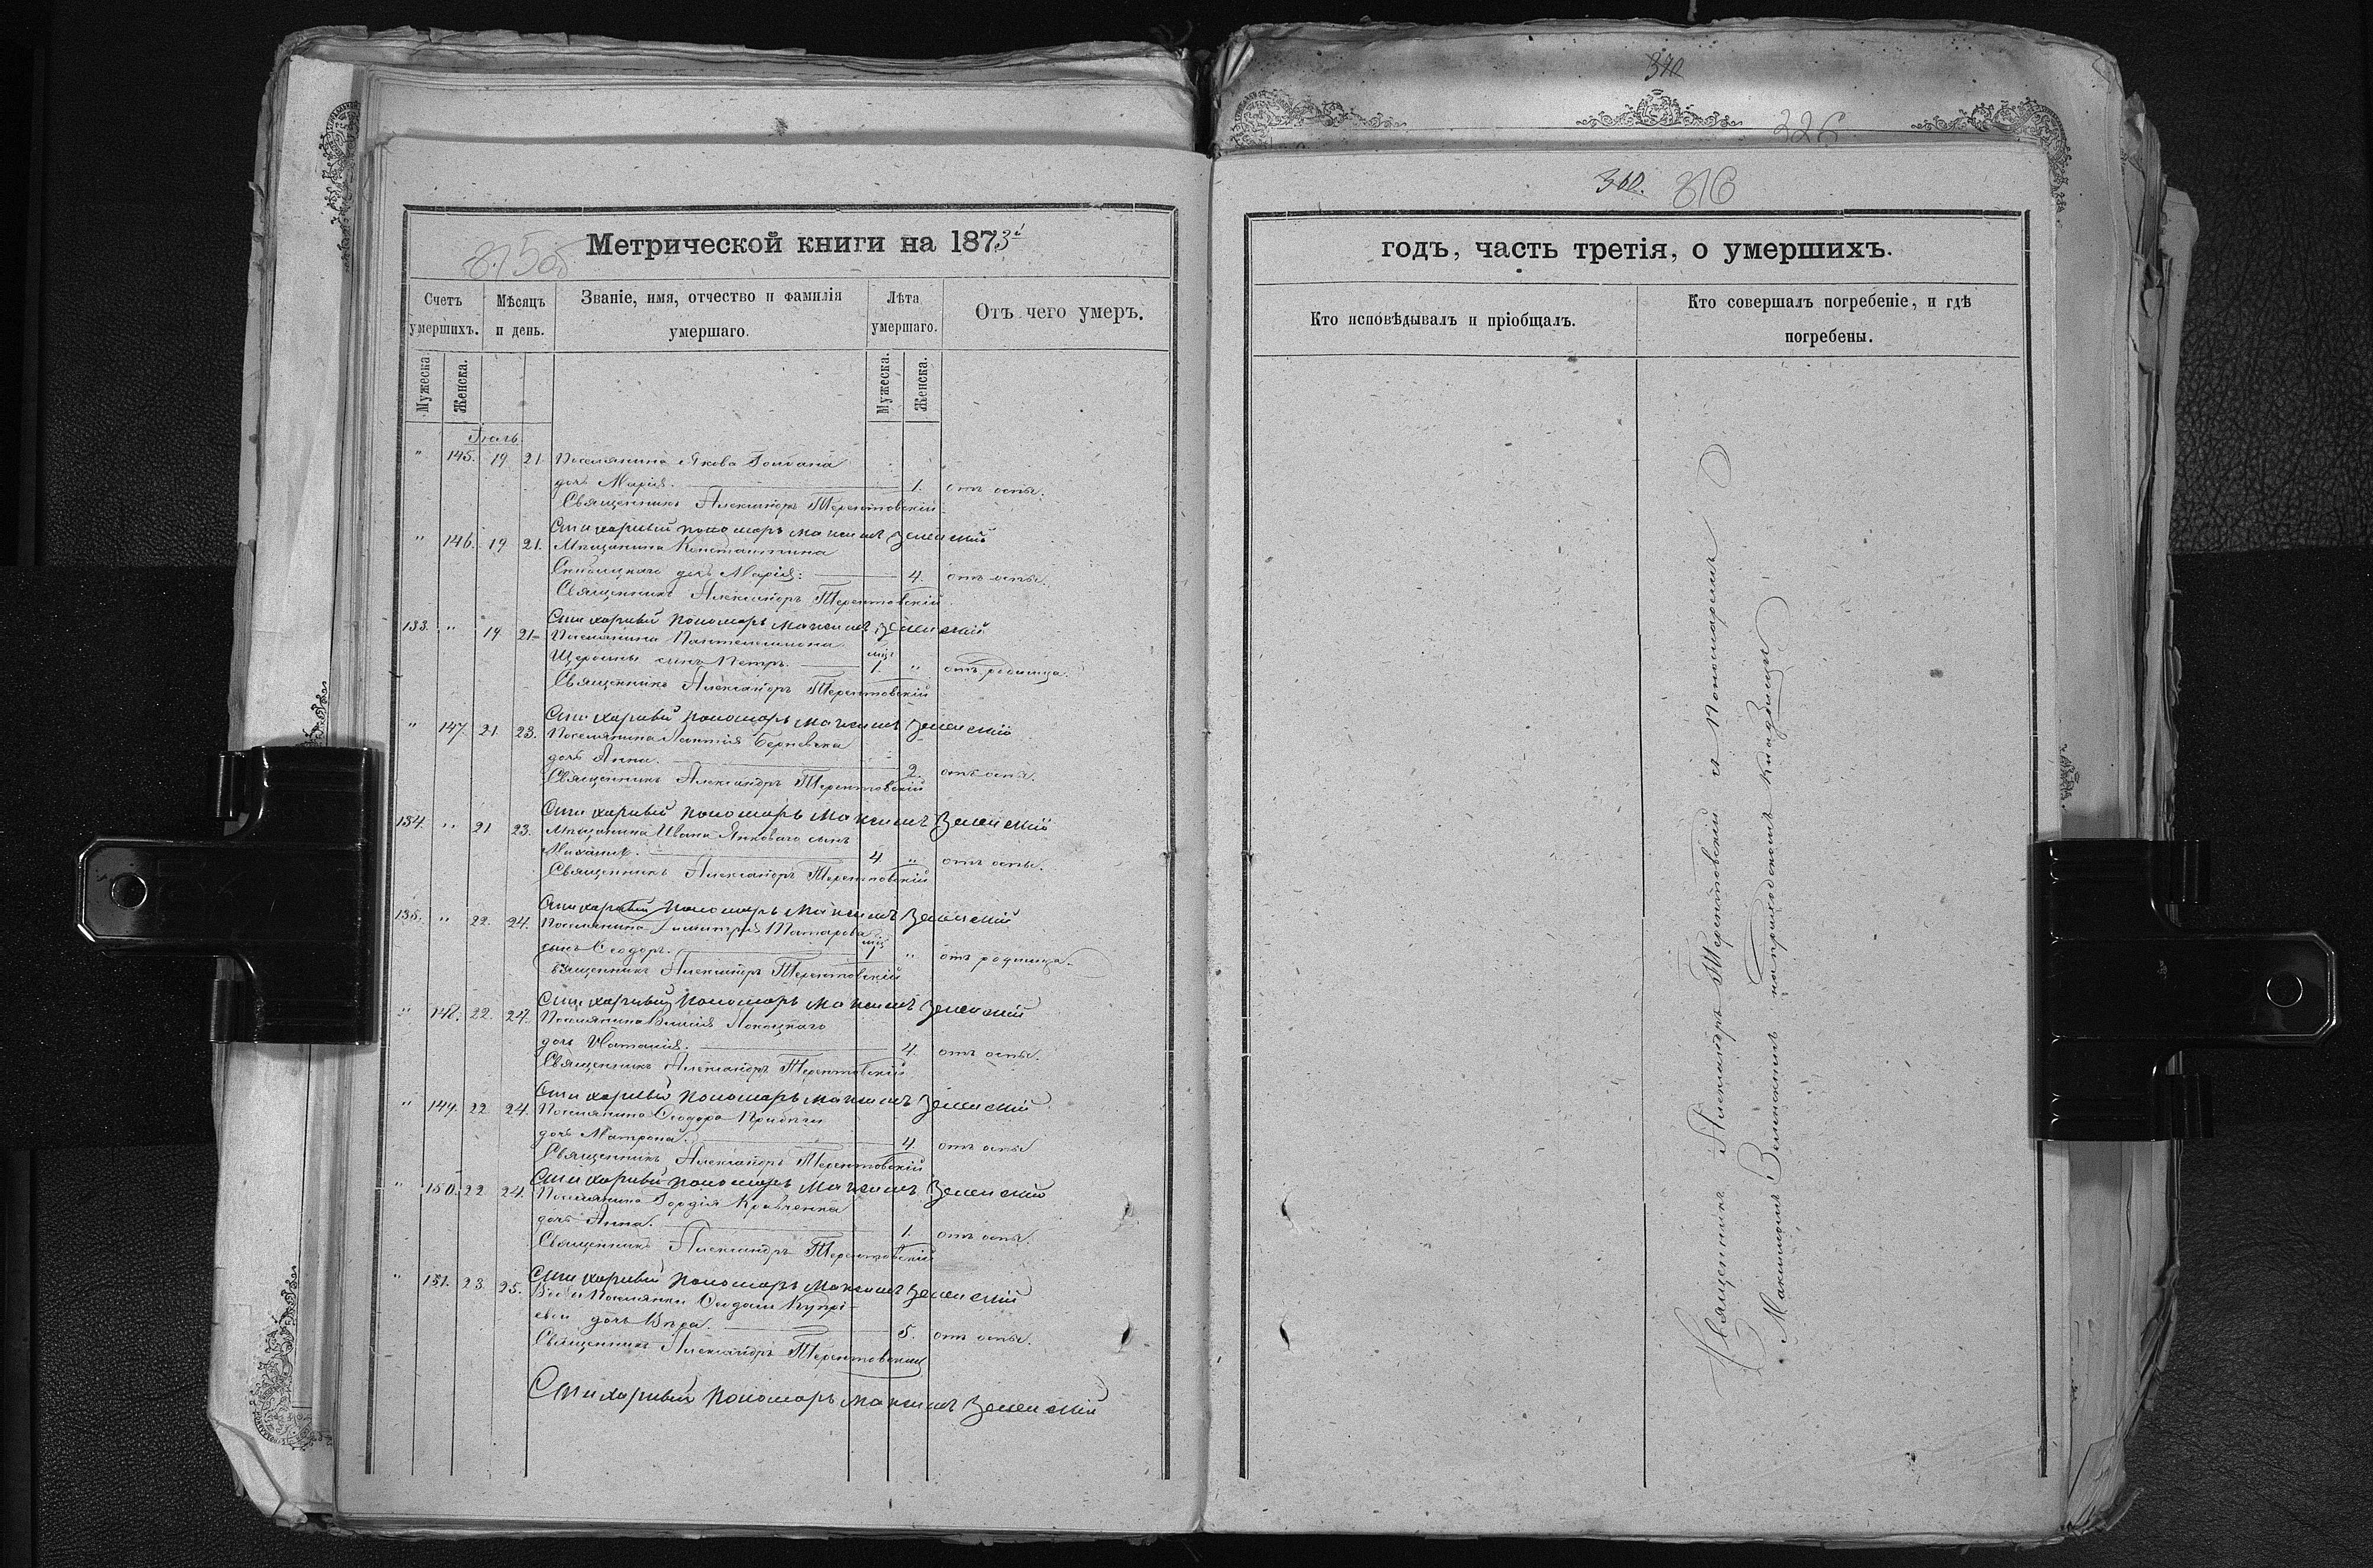 315об
Метрической книги на 1873й
Счетъ умершихъ.
Мѣсяцъ и день.
Званіе, имя, отчество и фамилія умершаго.
Лѣта умершаго.
Отъ чего умеръ.
Мужеска.
Женска.
Мужеска.
Женска.
Іюль
" 145. 19 21. Поселянина Якова
дочь Марія. 1. отъ оспы.
Священникъ Александръ Терентовскій
Стихарный пономарь Максимъ Зеленскій
" 146. 19 21. Мѣщанина Константина
дочь Марія: 4. отъ оспы.
Священникъ Александръ Терентовскій
Стихарный пономарь Максимъ Зеленскій
133. " 19 21 Поселянина Пантелеимона
Щербины сынъ Петръ. 1. мцъ " отъ родимца.
Священникъ Александръ Терентовскій
Стихарный пономарь Максимъ Зеленскій
" 147. 21 23. Поселянина
дочь Анна. 2. отъ оспы.
Священникъ Александръ Терентовскій
Стихарный пономарь Максимъ Зеленскій
134. " 21 23. Мѣщанина Ивана Янковаго сынъ
Михаилъ. 4 " отъ оспы.
Священникъ Александръ Терентовскій
Стихарный пономарь Максимъ Зеленскій
135. " 22. 24. Поселянина Димитрія Татарова
сынъ Ѳеодоръ. 1 мцъ " отъ родимца.
Священникъ Александръ Терентовскій
Стихарный пономарь Максимъ Зеленскій
" 148. 22. 24. Поселянина
дочь Наталія. 4. отъ оспы.
Священникъ Александръ Терентовскій
Стихарный пономарь Максимъ Зеленскій
" 149. 22 24. Поселянина Ѳеодора
дочь Матрона. 4. отъ оспы
Священникъ Александръ Терентовскій
Стихарный пономарь Максимъ Зеленскій
" 150. 22 24. Поселянина Гордія Кравченка
дочь Анна. 1. отъ оспы.
Священникъ Александръ Терентовскій
Стихарный пономарь Максимъ Зеленскій
" 151. 23. 25. Поселянки
дочь Вѣра. 5. отъ оспы.
Священникъ Александръ Терентовскій
Стихарный пономарь Максимъ Зеленскій
370
326
360. 316
годъ, часть третія, о умершихъ.
Кто исповѣдывалъ и пріобщалъ.
Кто совершалъ погребеніе, и гдѣ погребены.
Священникъ Александръ Терентовскій и Пономаремъ
Максимомъ Зеленскимъ на приходскомъ кладбищѣ